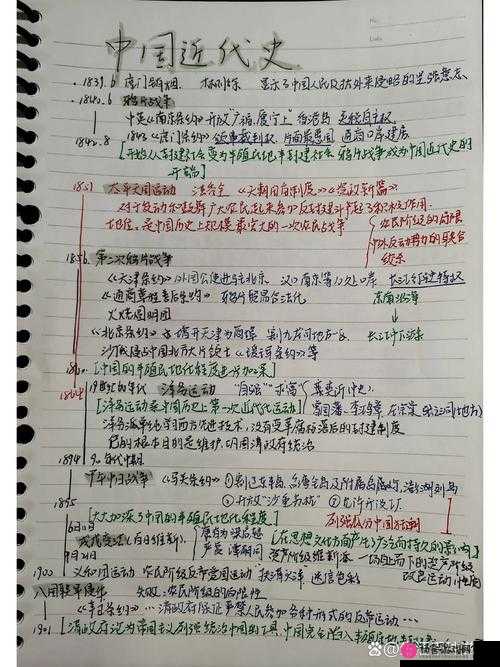 中国近代史
1839.6 虎门销烟 林则徐 显示了中国人民反抗外来侵略的坚强意志
1840.6 鸦片战争
中英《南京条约》开放"广福厦宁上" 割香港岛
1842.8 1843《虎门条约》领事裁判权 片面最惠国 通商口岸建房
[开始从封建社会变为半殖民地半封建社会 鸦片战争成为中国近代史的
开端]
1851 太平天国运动 洪秀全 《天朝田亩制度》《资政新篇》
对于发动和鼓舞广大农民起来参加反封建斗争起了积极作用
地位:是中国历史上规模最宏大的一次农民战争
农民阶级的局限
中外反动势力的联合
绞杀
1856 第二次鸦片战争
《天津条约》外国公使进驻北京 汉口南京等10处口岸 长江
《通商章程善后条约》 鸦片贸易合法化
火烧圆明园
《北京条约》 增开天津为商埠 割九龙司地方一区
沙俄侵占中国北方大片领土《瑷珲条约》等
1860 [中国的半殖民地化程度进一步加深]
1864 19世纪60年代 洋务运动 "自强""求富"
[洋务运动是中国历史上第一次近代化运动] 曾国藩、李鸿章、左宗棠、张之洞(地方)
洋务派单纯学习西方先进技术,没有变革腐朽落后的封建制度
它的根本目的是维护、巩固清政府统治
1894 90年代中期
甲午中日战争 《马关条约》①割辽东半岛、台湾全岛及附属岛屿、澎湖列岛
1895 ②开放"沙重苏杭" ③允许开设工厂
[大大加深了中国的半殖民地化程度] 列强瓜分中国
6月11日
戊戌变法(百日维新) 康有为 梁启超
严复 谭嗣同
9月21日 资产阶级维新派
[在思想文化方面产生广泛而持久的影响]
一场自上而下的资产阶级
改良运动
1900 义和团运动 农民阶级反帝爱国运动"扶清灭洋"
八国联军侵华 失败:农民阶级的局限性
《辛丑条约》…清政府保证严禁人民参加各种形式的反帝运动…
1901 [清政府沦为帝国主义列强统治中国的工具,中国完全陷入半殖民地